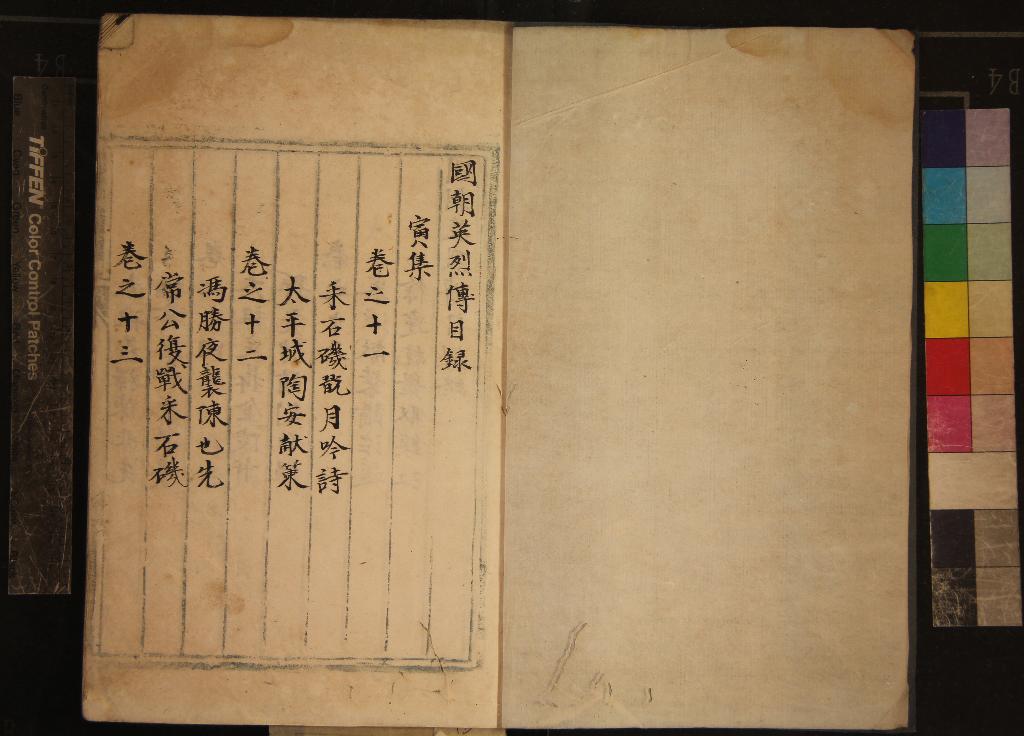 國朝英烈傳目録
寅集
巻之十一
采石磯翫月吟詩
太平城陶安献策
巻之十二
馮勝夜襲陳也先
常公復戰采石磯
巻之十三
TIFFEN Color Control Patches
B4
B4